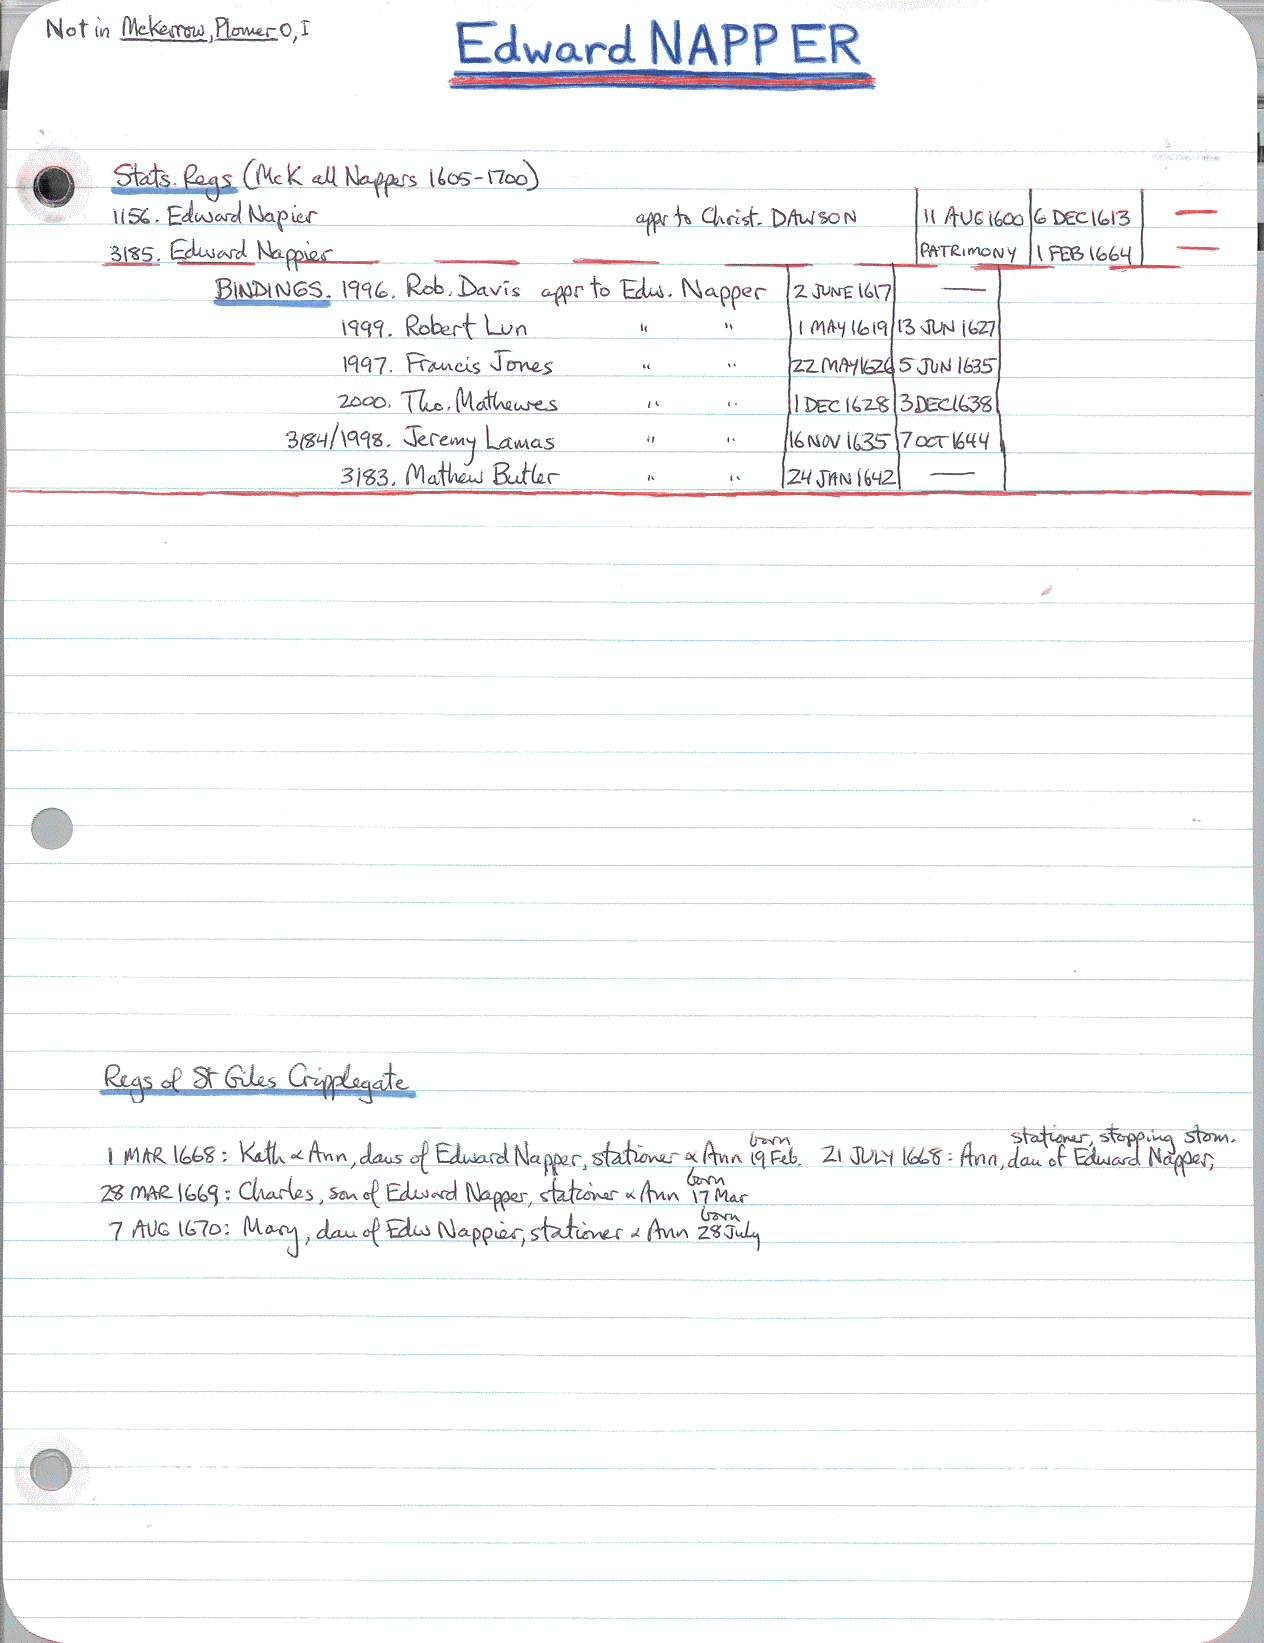 Not in McKerrow, Plomer O, I
Edward NAPPER
Stats. Regs (McK all Nappers 1605-1700)
1156. Edward Napier appr to Christ. DAWSON 11 AUG 1600 6 DEC 1613 —
3185. Edward Nappier PATRIMONY 1 FEB 1664 —
BINDINGS. 1996. Rob. Davis appr to Edw. Napper 2 JUNE 1617 —
1999. Robert Lun " " 1 MAY 1619 13 JUN 1627
1997. Francis Jones " " 22 MAY 1626 5 JUN 1635
2000. Tho. Mathewes " " 1 DEC 1628 3 DEC 1638
3184/1998. Jeremy Lamas " " 16 NOV 1635 7 OCT 1644
3183. Mathew Butler " " 24 JAN 1642 —
Regs of St Giles Cripplegate
born stationer, stopping stom.
1 MAR 1668: Kath & Ann, daus of Edward Napper, stationer & Ann 19 Feb. 21 JULY 1668: Ann, dau of Edward Napper,
born
28 MAR 1669: Charles, son of Edward Napper, stationer & Ann 17 Mar
born
7 AUG 1670: Mary, dau of Edw Nappier, stationer & Ann 28 July